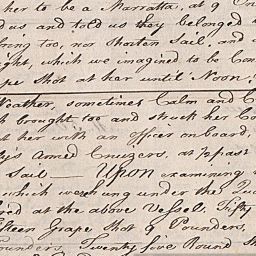 her to be a Marratta, at 9 On
d us and told us they belonged
ring too, nor Shorten Sail, and
ght, which we imagined to be Con
pe Shot at her until Noon,
Weather, sometimes Calm and C
h brought too and struck her Co
t her with an Officer onboard,
y's Armed Cruizers, at ½ past
Sail — Upon examining
which were hung under the Qua
red at the above Vessel. Fifty
fteen Grape Shot 9 Pounders,
ounders, Twenty five Round Sh